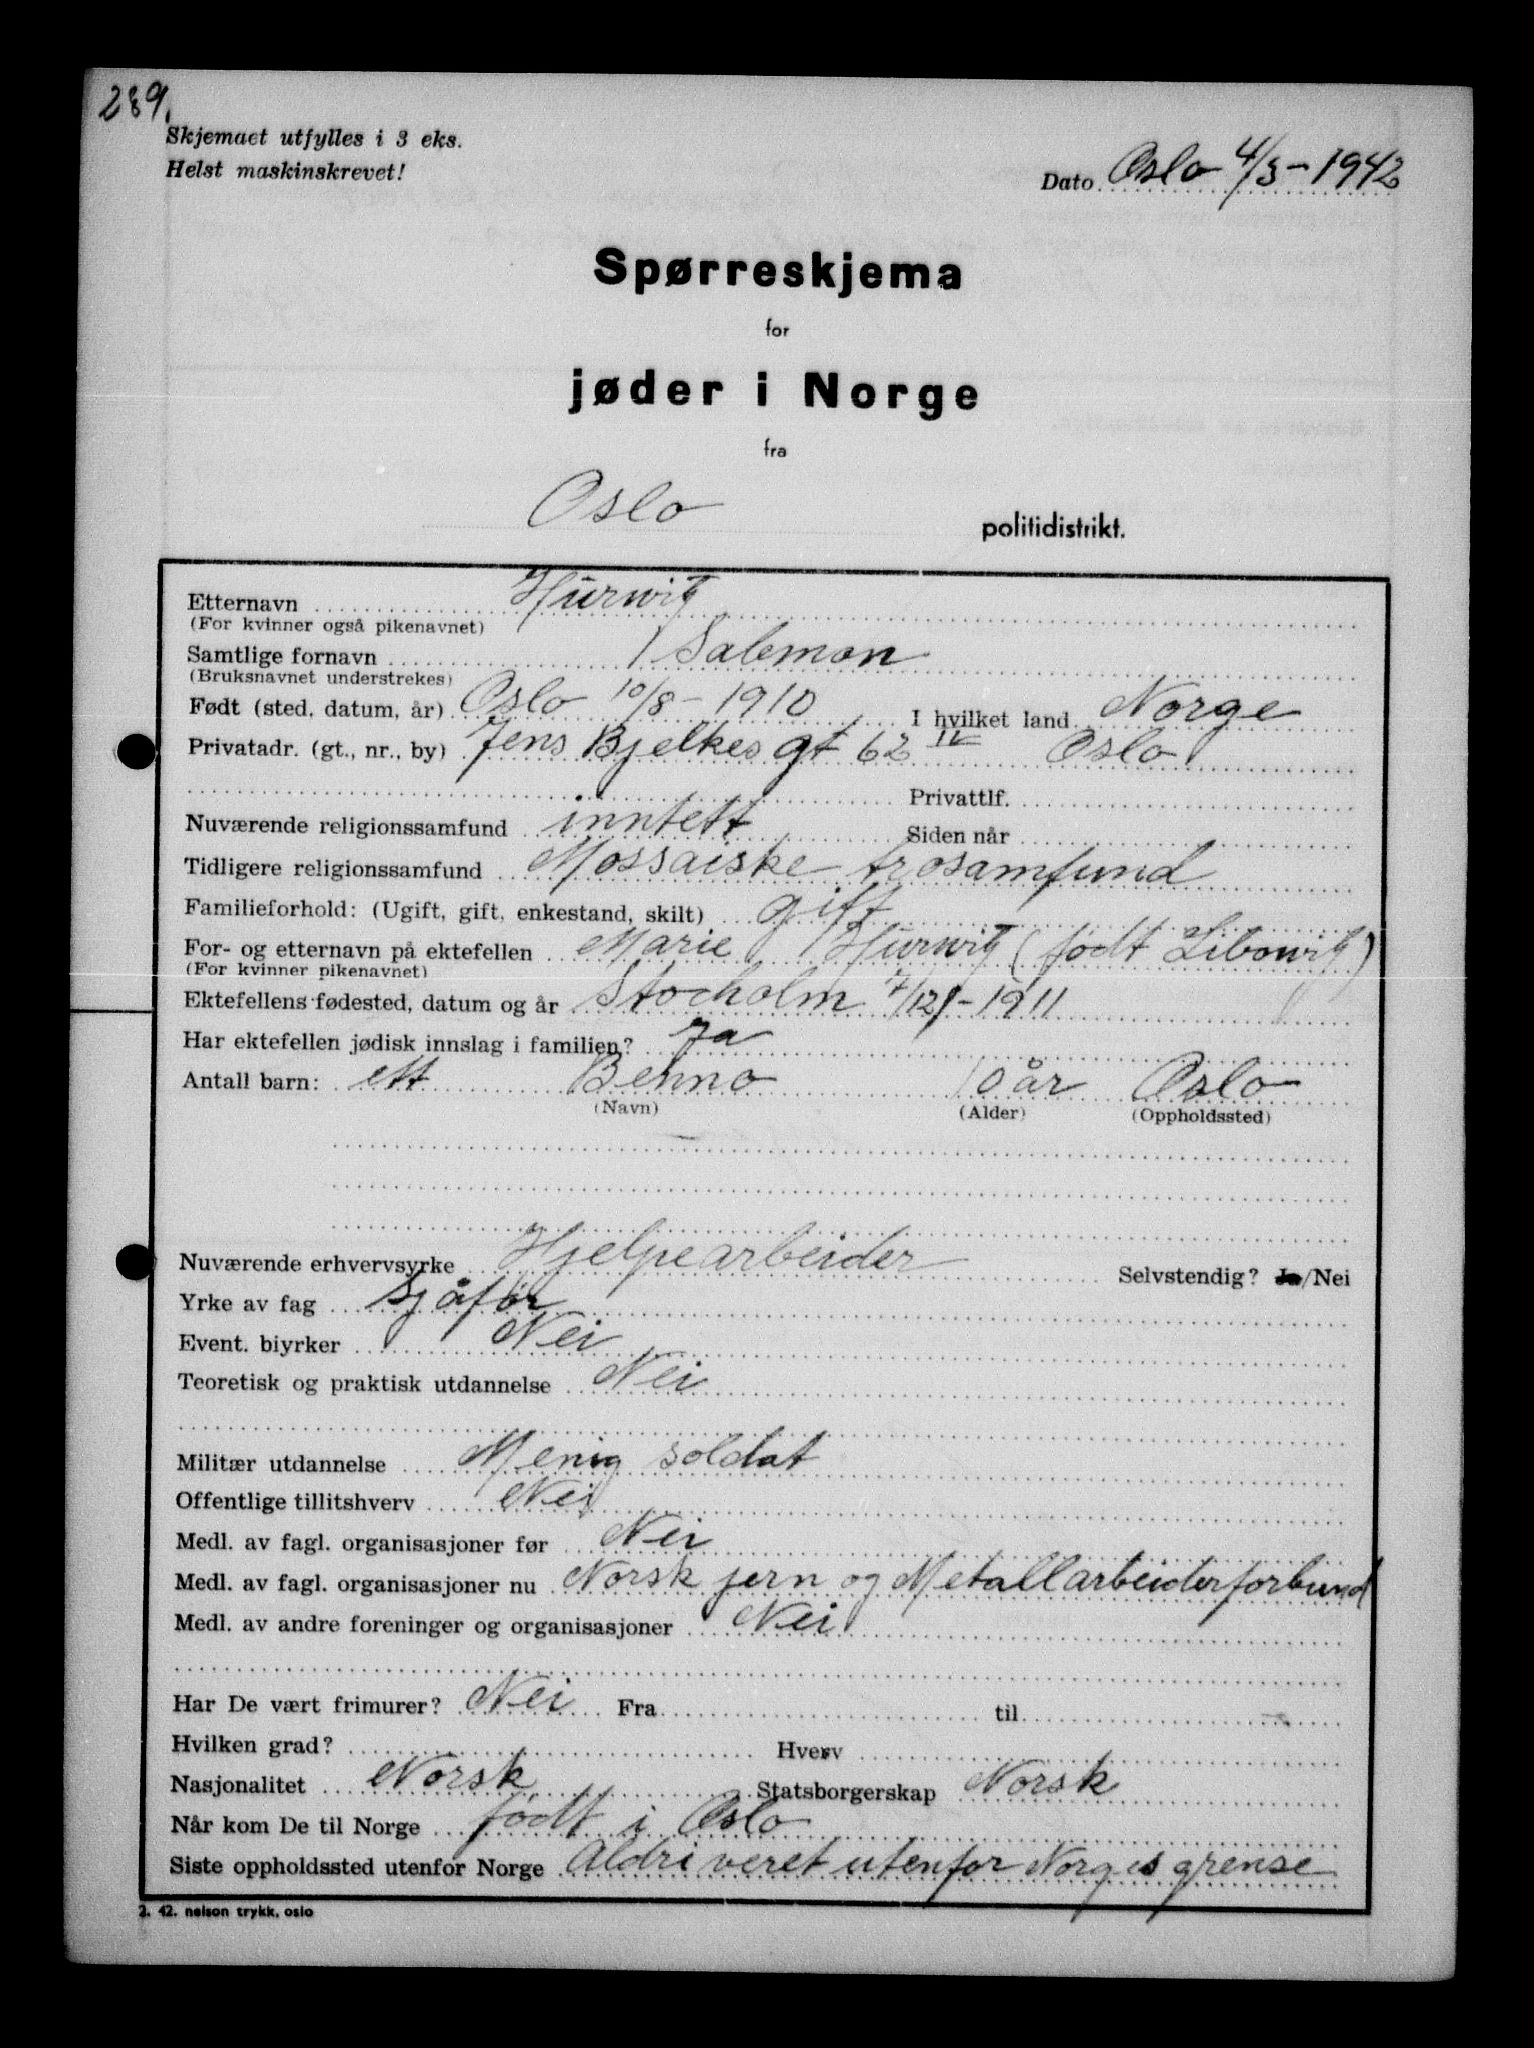 289.
Skjemaet utfylles i 3 eks.
Helst maskinskrevet!
Dato Oslo 4/3-1942
Spørreskjema
for
jøder i Norge
fra
Oslo politidistrikt.
Etternavn Hurwitz
(For kvinner også pikenavnet)
Samtlige fornavn Salemon
(Bruksnavnet understrekes)
Født (sted, datum, år) Oslo 10/8-1910 I hvilket land Norge
Privatadr. (gt., nr., by) Jens Bjelkes gt 62 IV Oslo
Privattlf.
Nuværende religionssamfund inntett Siden når
Tidligere religionssamfund Mossaiske trosamfund
Familieforhold: (Ugift, gift, enkestand, skilt) gift
For- og etternavn på ektefellen Marie Hurwitz (født Libowitz)
(For kvinner pikenavnet)
Ektefellens fødested, datum og år Stocholm 7/12-1911
Har ektefellen jødisk innslag i familien? Ja
Antall barn: ett Benno 10 år Oslo
(Navn) (Alder) (Oppholdssted)
Nuværende erhvervsyrke Hjelpearbeider Selvstendig? Ja/Nei
Yrke av fag Sjåfør
Event. biyrker Nei
Teoretisk og praktisk utdannelse Nei
Militær utdannelse Menig soldat
Offentlige tillitshverv Nei
Medl. av fagl. organisasjoner før Nei
Medl. av fagl. organisasjoner nu Norsk jern og Metallarbeiderforbund
Medl. av andre foreninger og organisasjoner Nei
Har De vært frimurer? Nei Fra til
Hvilken grad? Hverv
Nasjonalitet Norsk Statsborgerskap Norsk
Når kom De til Norge født i Oslo
Siste oppholdssted utenfor Norge Aldri veret utenfor Norges grense
2. 42. nelson trykk, oslo